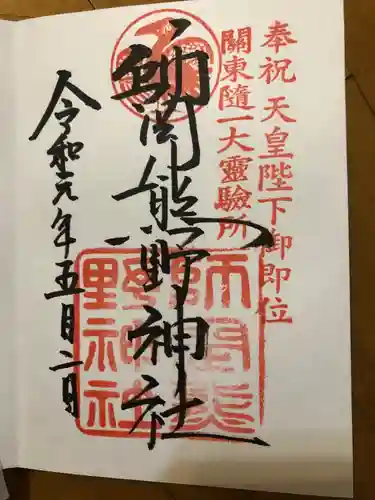 奉祝 天皇陛下御即位
關東隨一大靈驗所
師岡熊野神社
令和元年五月二日
師岡熊
野神社